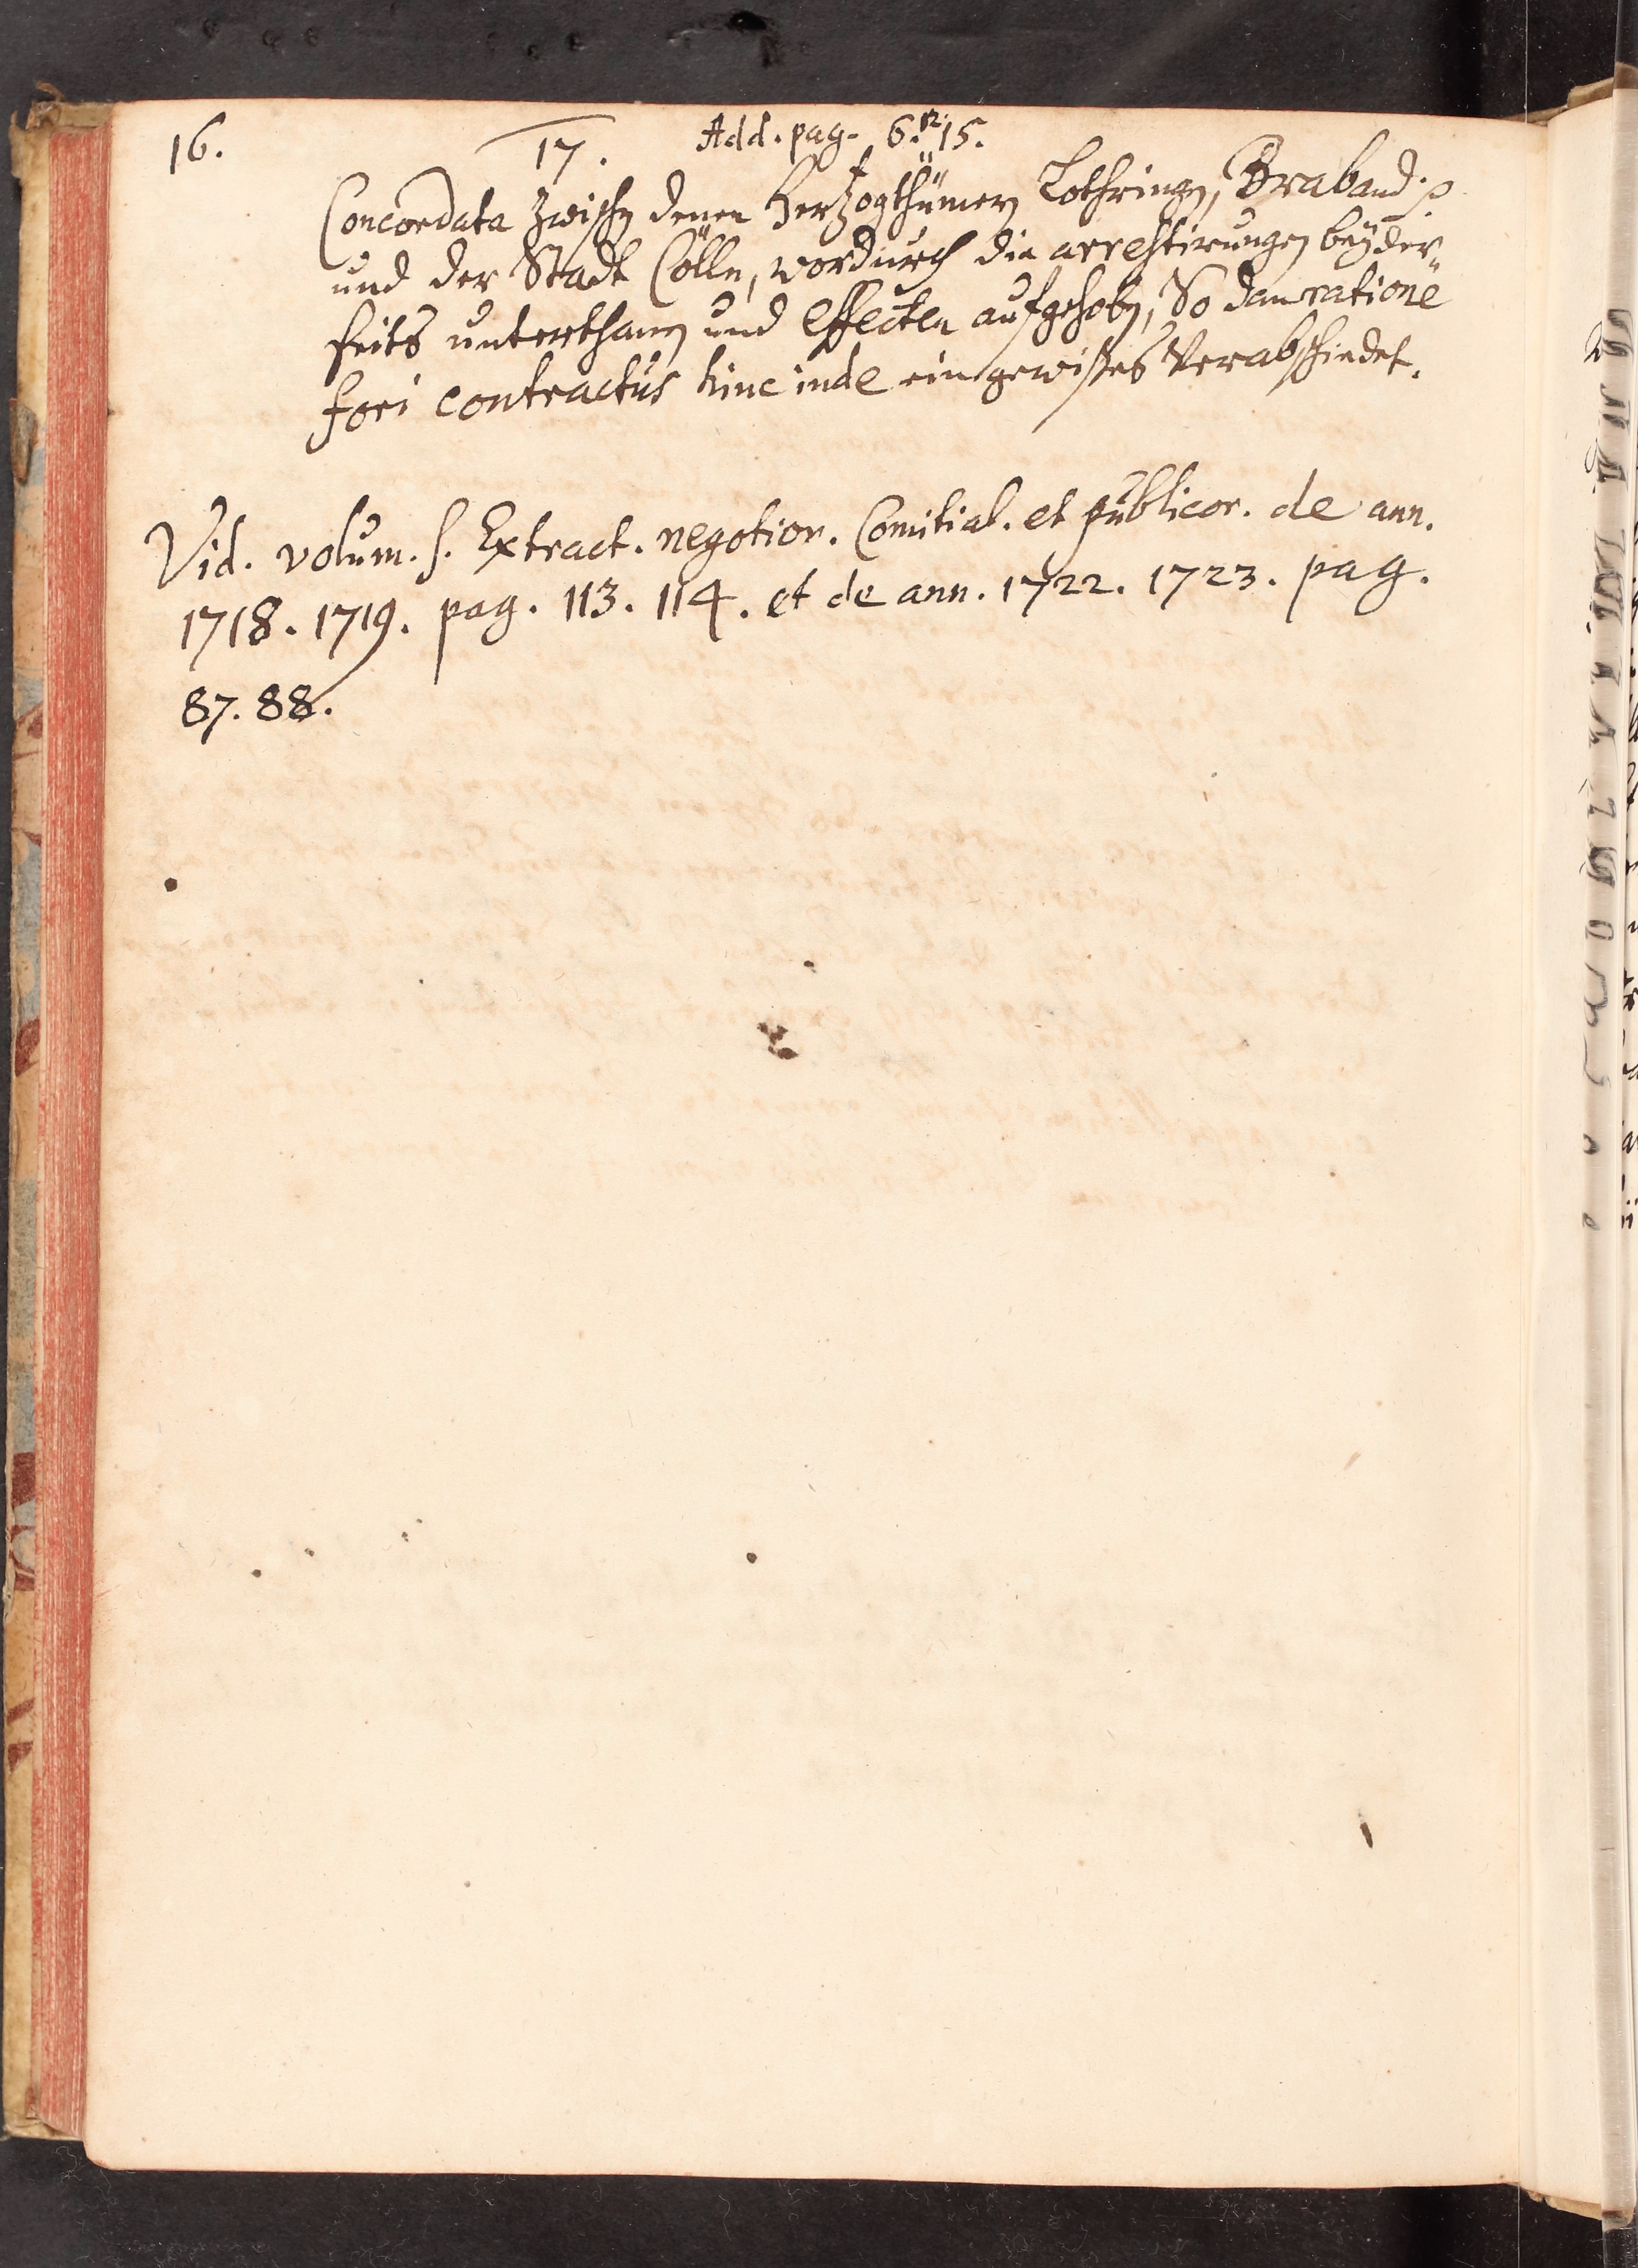 16. 17. Add. pag. 6. 12. 15.
Concordata zwischen denen Hertzogthümern Lothringen, Braband p
und der Stadt Cölln, wordurch die arrestirungen beyder-
seits unterthanen und effecten aufgehoben, So dan ratione
fori contractus hinc inde ein gewißes Verabschiedet.
Vid. volum. s. Extract. negotior. Comitial. et publicor. de ann.
1718. 1719. pag. 113. 114. et de ann. 1722. 1723. pag.
87. 88.